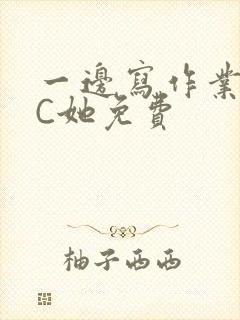 一邊寫作業
C她免費
柚子西西